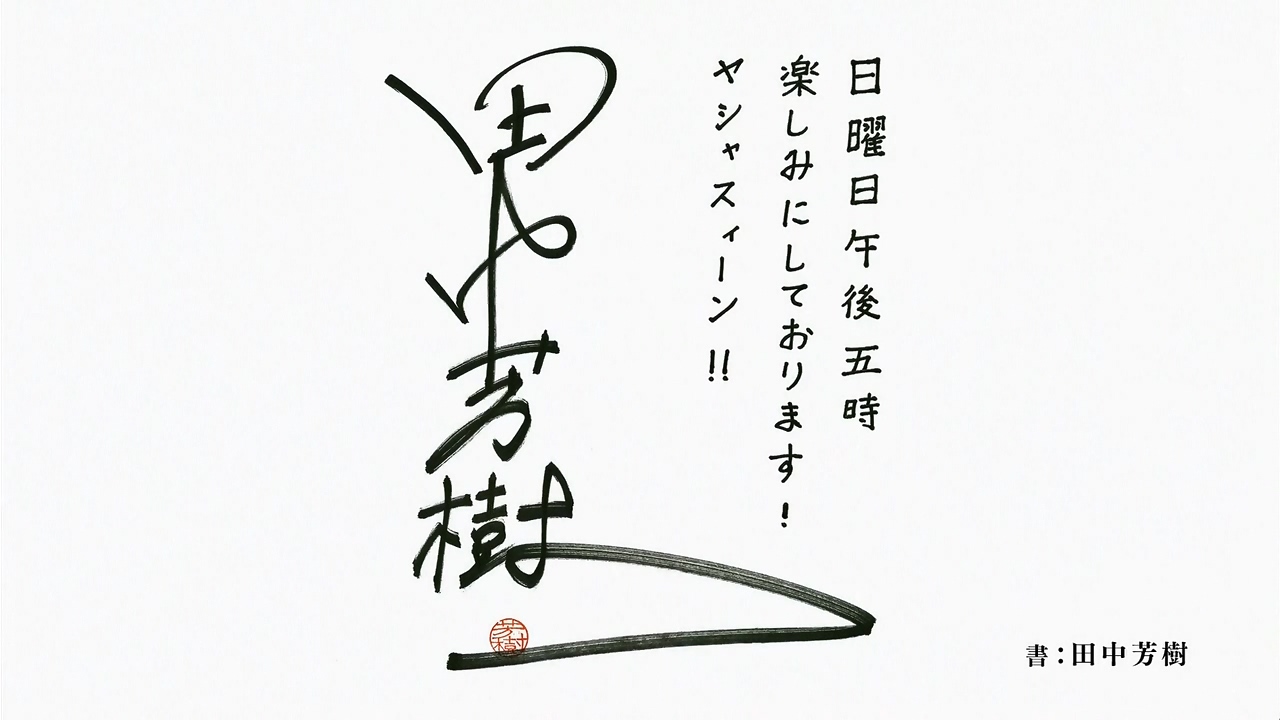 日曜日午後五時
楽しみにしております！
ヤシャスィーン!!
田中芳樹
芳樹
書：田中芳樹